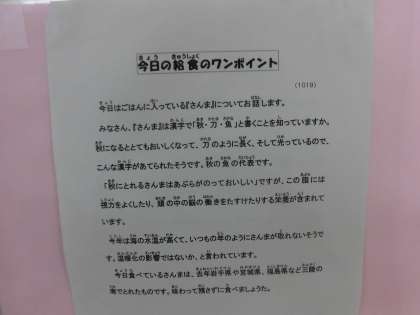 今日の給食のワンポイント
(1019)
今日はごはんに入っている『さんま』についてお話します。
みなさん、『さんま』は漢字で「秋・刀・魚」と書くことを知っていますか。
秋になるととてもおいしくなって、刀のように長く、そして光っているので、
こんな漢字があてられたそうです。秋の魚の代表です。
「秋にとれるさんまはあぶらがのっておいしい」ですが、この脂には
視力をよくしたり、頭の中の脳の働きをたすけたりする栄養が含まれて
います。
今年は海の水温が高くて、いつもの年のようにさんまが取れないそうで
す。温暖化の影響ではないか、と言われています。
今日食べているさんまは、去年岩手県や宮城県、福島県など三陸の
海でとれたものです。味わって残さずに食べましょうた。